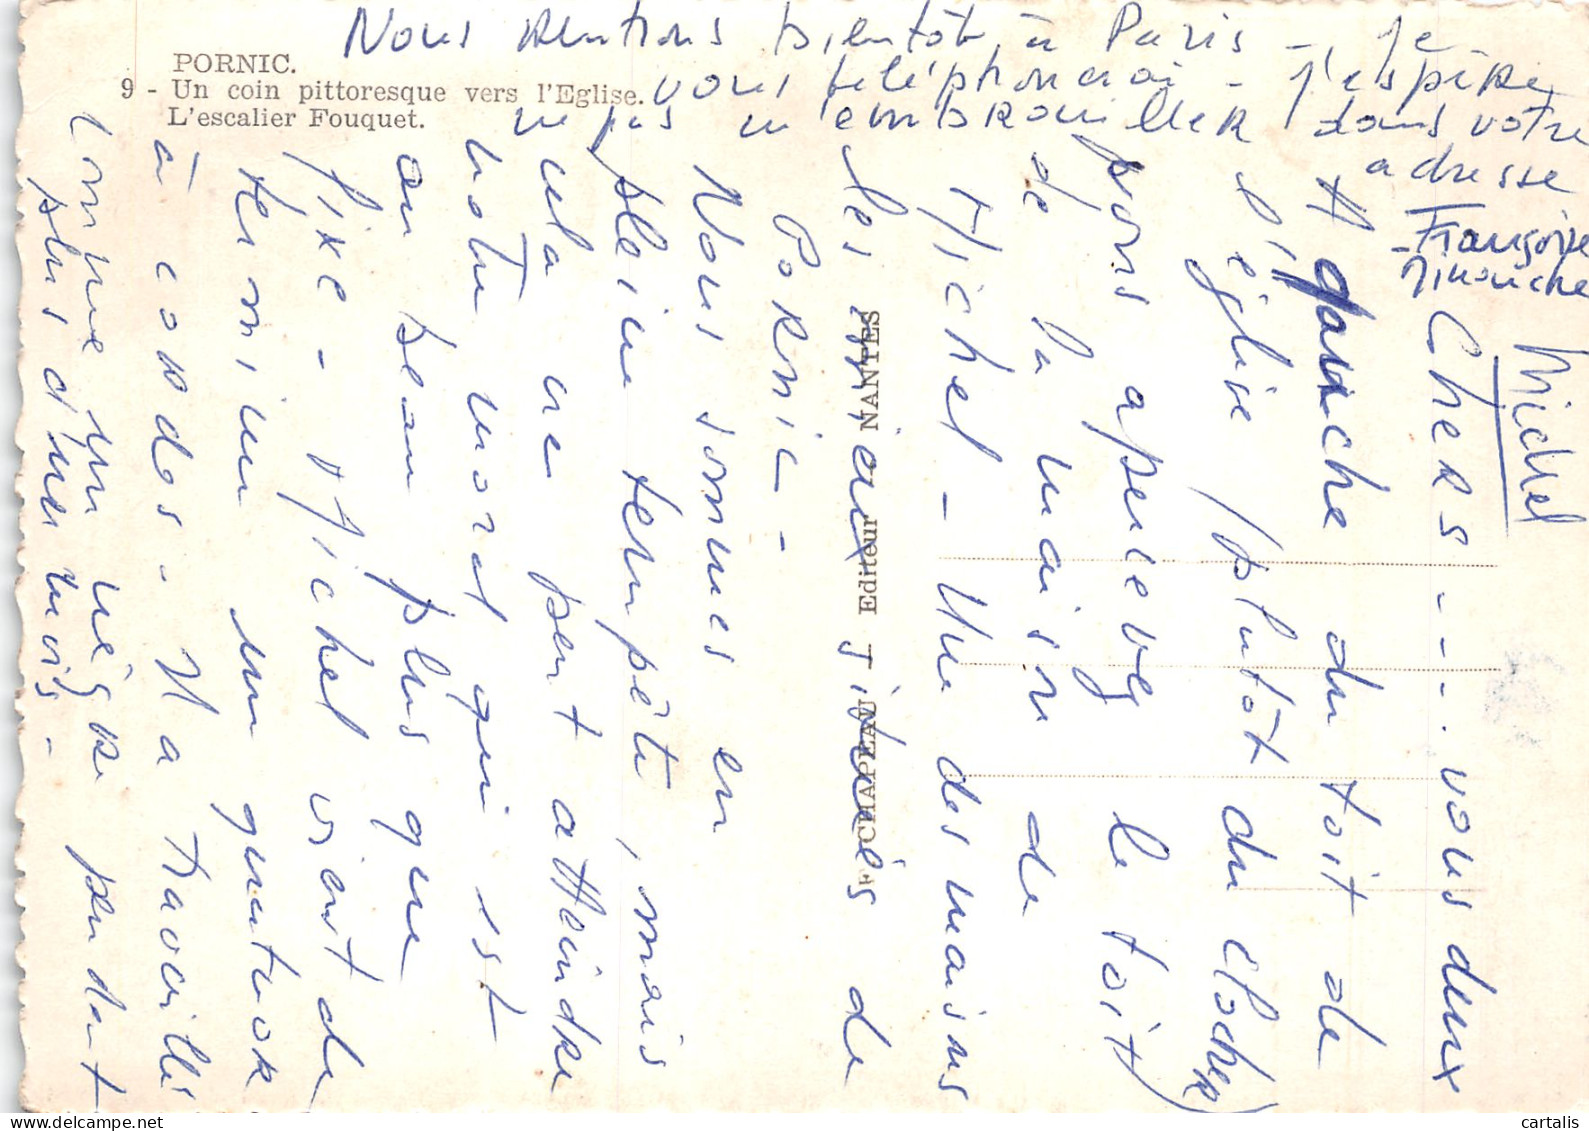 PORNIC.
9 - Un coin pittoresque vers l'Eglise.
L'escalier Fouquet.
F. CHAPEAU - Editeur - NANTES
Chers - - - . vous deux
A gauche du toit de
l'église (plutôt du clocher)
vous apercevez le toit
de la maison de
Michel - Une des maisons
les mieux situées de
Pornic -
Nous sommes en
pleine tempête, mais
cela ne peut atteindre
notre moral qui est
au beau plus que
fixe - Michel vient de
terminer un quatuor
à cordes - Il a travaillé
comme un nègre pendant
plus d'un mois -
Nous rentrons bientôt à Paris - , je
vous téléphonerai - J'espère
ne pas m'embrouiller dans votre
adresse
Françoise
Minouche
Michel
cartalis